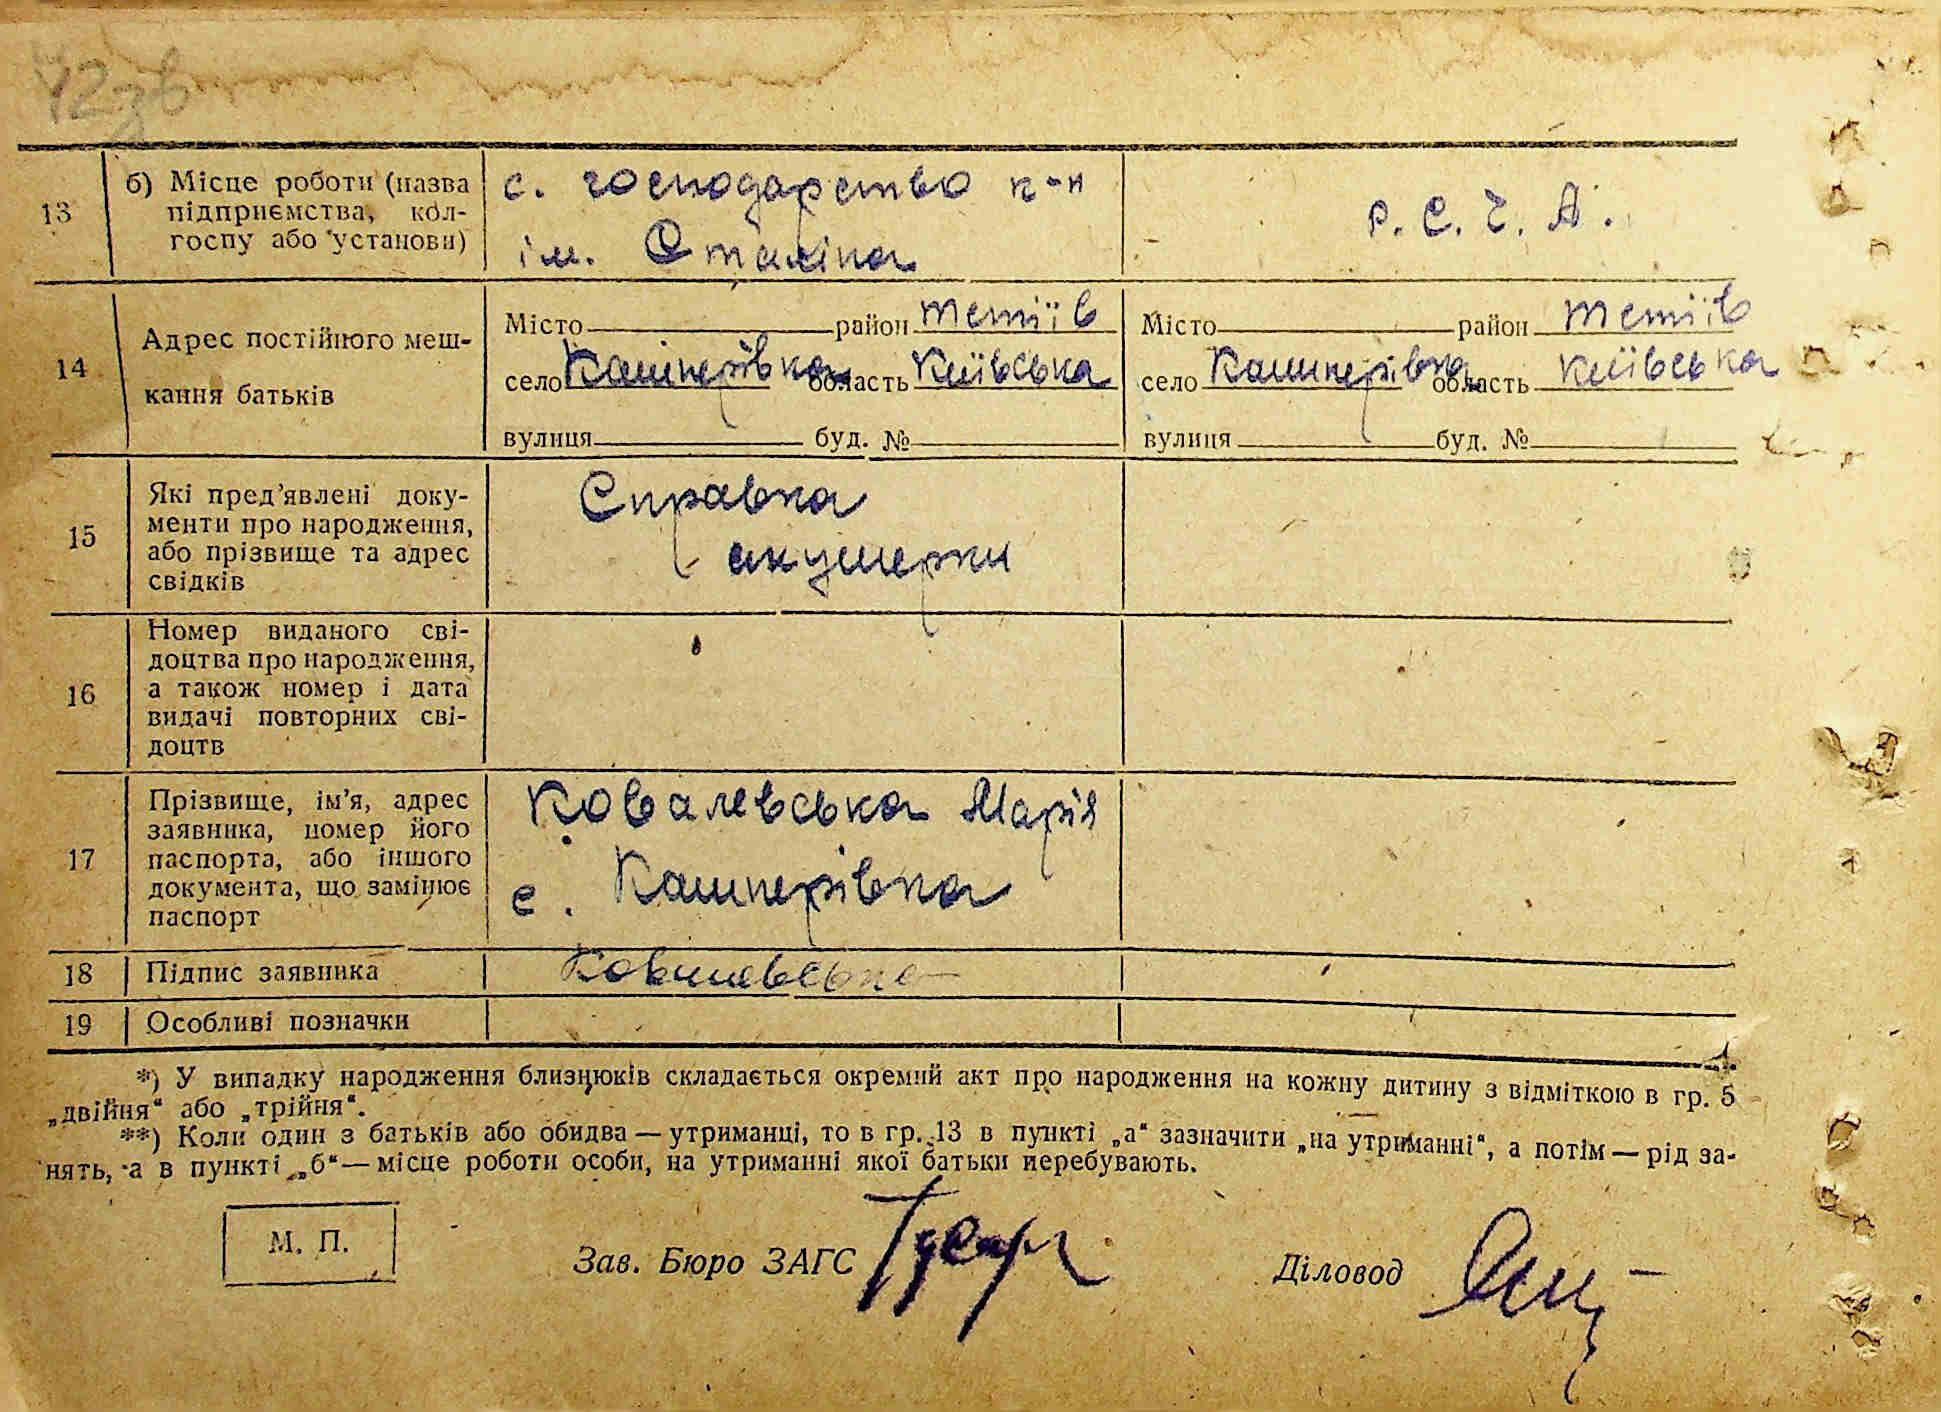 42зв
13
б) Місце роботи (назва
підприємства, кол-
госпу або установи)
с. господарство к-п
ім. Сталіна
Р. С. Ч. А.
14
Адрес постійного меш-
кання батьків
Місто район Тетіїв
село Кашперівка область Київська
вулиця буд. №
Місто район Тетіїв
село Кашперівка область Київська
вулиця буд. №
15
Які пред’явлені доку-
менти про народження,
або прізвище та адрес
свідків
Справка
акушерки
16
Номер виданого сві-
доцтва про народження,
а також номер і дата
видачі повторних сві-
доцтв
17
Прізвище, ім’я, адрес
заявника, номер його
паспорта, або іншого
документа, що замінює
паспорт
Ковалевська Марія
с. Кашперівка
18
Підпис заявника
Ковалевська
19
Особливі позначки
*) У випадку народження близнюків складається окремий акт про народження на кожну дитину з відміткою в гр. 5
„двійня“ або „трійня“.
**) Коли один з батьків або обидва — утриманці, то в гр. 13 в пункті „а“ зазначити „на утриманні“, а потім — рід за-
нять, а в пункті „б“ — місце роботи особи, на утриманні якої батьки перебувають.
М. П.
Зав. Бюро ЗАГС
Діловод